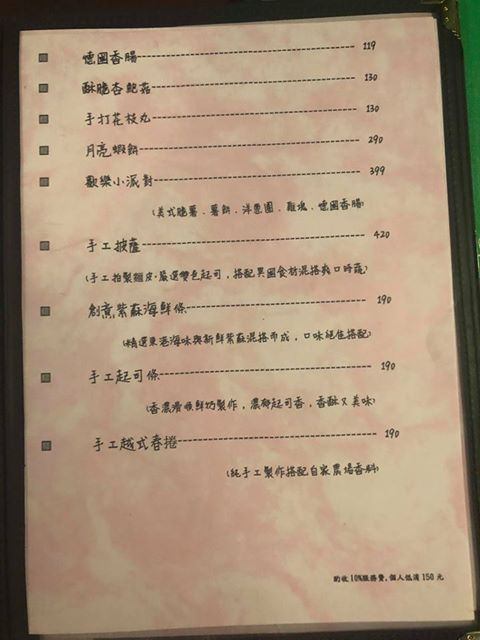 ■ 德國香腸 119
■ 酥脆杏鮑菇 130
■ 手打花枝丸 130
■ 月亮蝦餅 290
■ 歡樂小派對 399
(美式脆薯．薯餅．洋蔥圈．雞塊．德國香腸)
■ 手工披薩 420
(手工拍製麵皮．嚴選雙色起司，搭配異國食材混搭爽口時蔬)
■ 創意紫蘇海鮮條 190
(精選東港海味與新鮮紫蘇混搭而成，口味絕佳搭配)
■ 手工起司條 190
(香濃滑順鮮奶製作，濃郁起司香，香酥又美味)
■ 手工越式春捲 190
(純手工製作搭配自家農場香料)
酌收10%服務費，個人低消150元